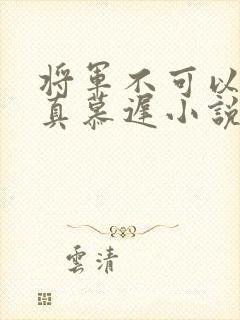 将軍不可以
真慕遲小說
雲清